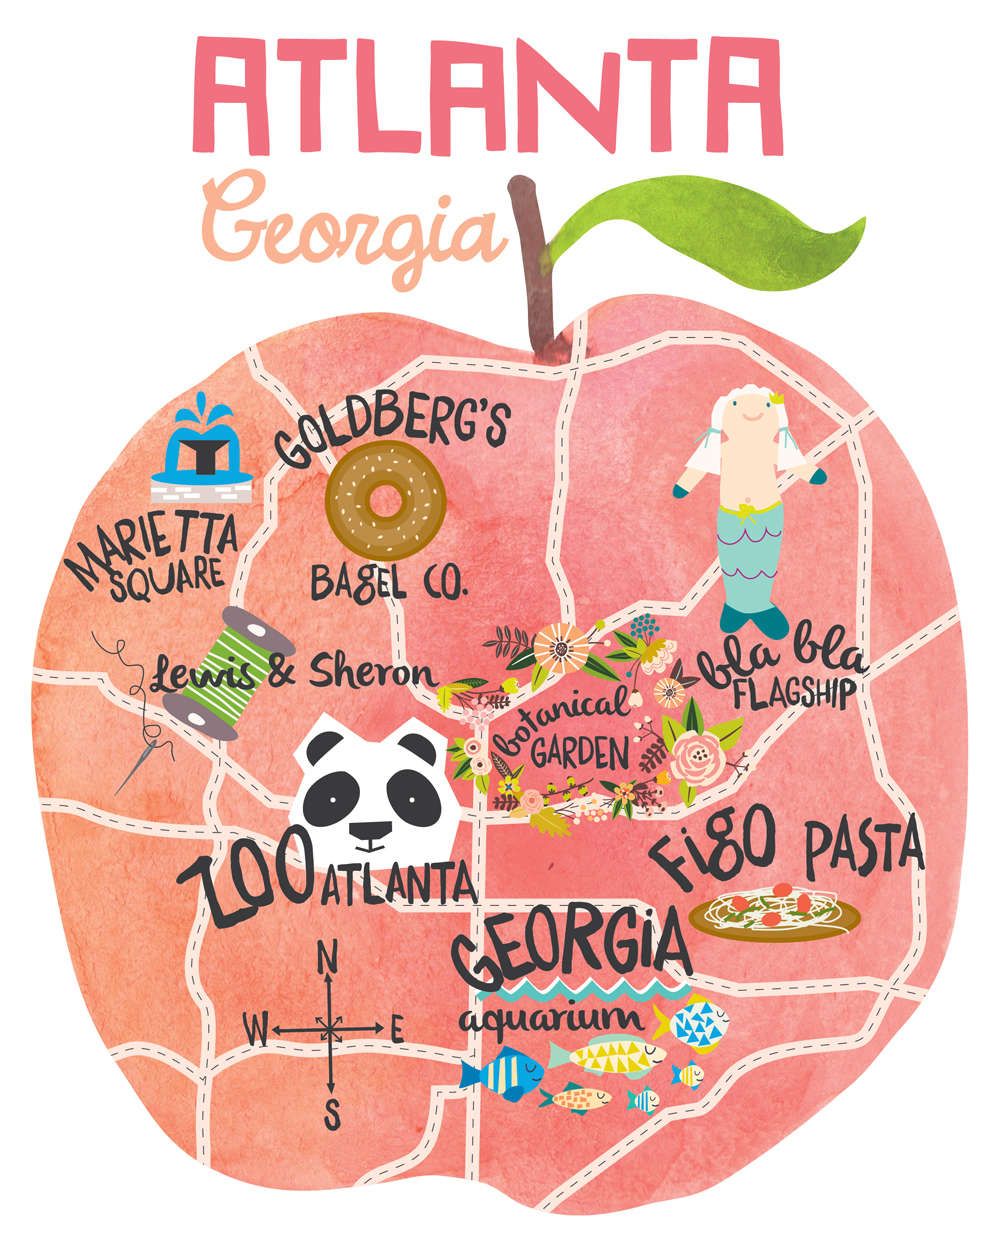 ATLANTA
Georgia
GOLDBERG'S
BAGEL CO.
MARIETTA
SQUARE
Lewis & Sheron
bla bla
FLAGSHIP
botanical
GARDEN
ZOO ATLANTA
FiGO PASTA
GEORGiA
aquarium
N
W E
S